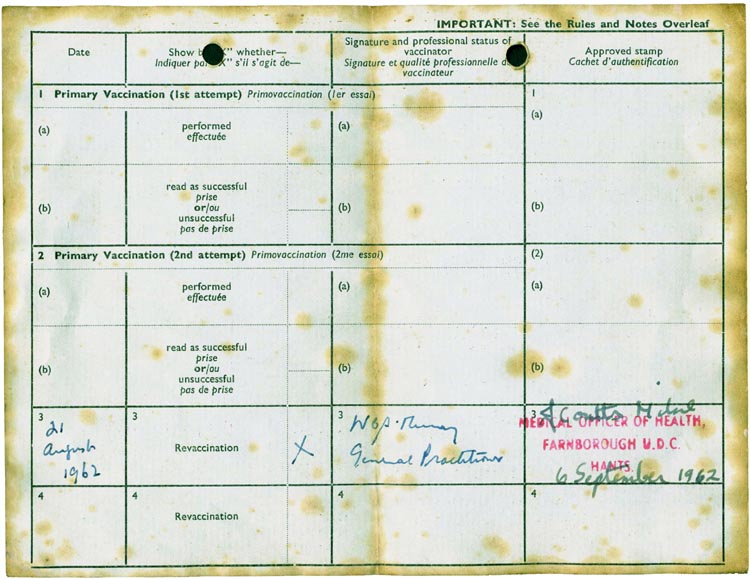 IMPORTANT: See the Rules and Notes Overleaf
Date
Show by "X" whether—
Indiquer par "X" s'il s'agit de—
Signature and professional status of
vaccinator
Signature et qualité professionnelle du
vaccinateur
Approved stamp
Cachet d'authentification
1 Primary Vaccination (1st attempt) Primovaccination (1er essai)
1
(a)
performed
effectuée
(a)
(a)
(b)
read as successful
prise
or/ou
unsuccessful
pas de prise
(b)
(b)
2 Primary Vaccination (2nd attempt) Primovaccination (2me essai)
(2)
(a)
performed
effectuée
(a)
(a)
(b)
read as successful
prise
or/ou
unsuccessful
pas de prise
(b)
(b)
3
21
August
1962
3
Revaccination
X
3
Murray
General Practitioner
3
Coutts Milne
MEDICAL OFFICER OF HEALTH,
FARNBOROUGH U.D.C.
HANTS.
6 September 1962
4
4
Revaccination
4